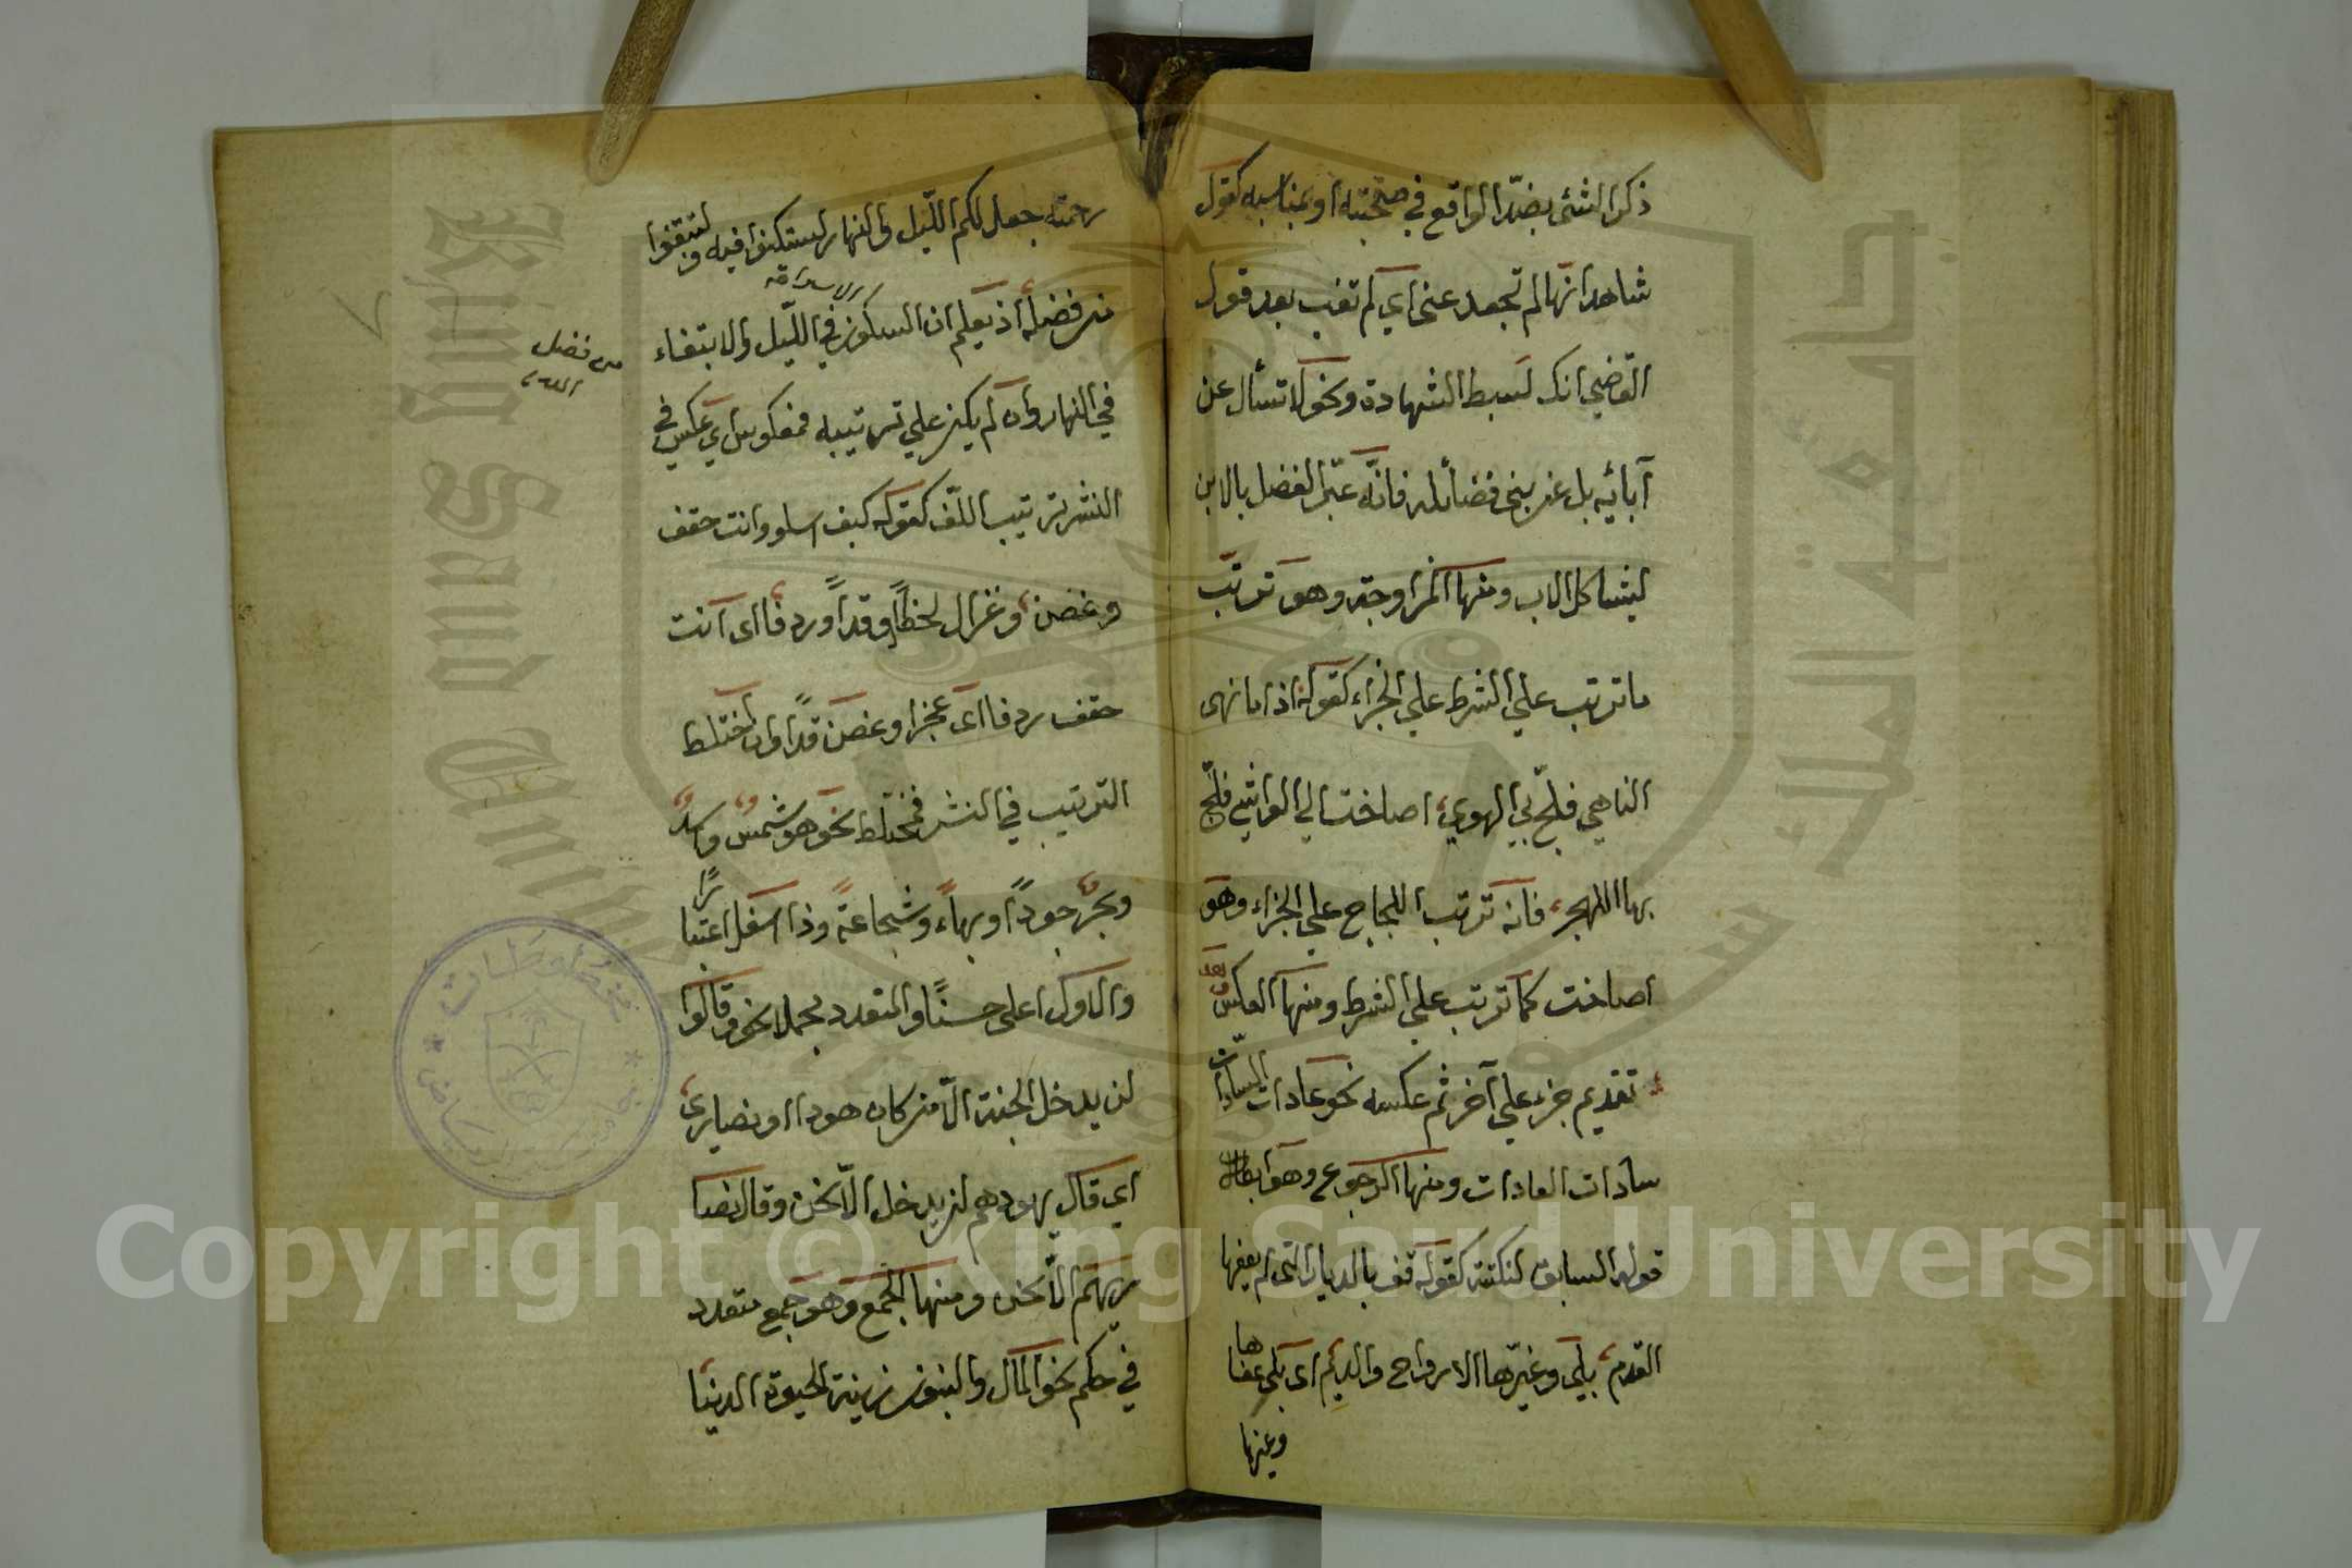 ذكر الشئ بضدّ الواقع في صحبته او بمناسبه كقول
شاهد انها لم تجعد عنى اي لم تغب بعد قول
القاضي انك لسبط الشهادة ونحو لا تسأل عن
آبائيه بل عن بنى فضائله فانّه عبّر الفضل بالابن
ليشاكل الاب ومنها المزاوجة وهو ترتّب
ما ترتب علي الشرط علي الجزاء كقوله اذا ما نهى
الناهي فلجّ بي الهوي اصاخت الي الواشي فلجّ
بها الهجر فانه ترتب اللجاج علي الجزاء وهو
اصاخت كما ترتب علي الشرط ومنها العكس
تقديم جزء علي آخر ثم عكسه نحو عادات السادات
سادات العادات ومنها الرجوع وهو ابطال
قوله السابق لنكتة كقوله قف بالديار التى لم يعفها
القدم بلى وغيّرها الارواح والديم اى بلى عفاها
وغيرها
رحمته جعل لكم اللّيل والنهار لتسكنوا فيه ولتبتغوا
من فضله اذ يعلم ان السكون في اللّيل والابتغاء
من فضل
في النهار وان لم يكن علي ترتيبه فمعكوس اي عكس في
النشر ترتيب اللّف كقوله كيف اسلو وانت حقف
وغصن وغزال لحظاً وقداً وردفا اى انت
حقف ردفا اى عجزا وغصن قدًا وان اختلط
الترتيب في النشر فمختلط نحو هو شمس واسد
وبحر جوداً وبهاءً وشجاعةً وذا اسفل اعتبارًا
والاول اعلى حسنًا والمتعدد مجملا نحو وقالوا
لن يدخل الجنة الّا من كان هودا او نصارى
اي قال يهودهم لن يدخل الّا نحن وقال نصا
ريهم الّا نحن ومنها الجمع وهو جمع متعدد
في حكم نحو المال والبنون زينة الحيوة الدنيا
مخطوطات
جامعة الملك سعود
King Saud University
Copyright © King Saud University